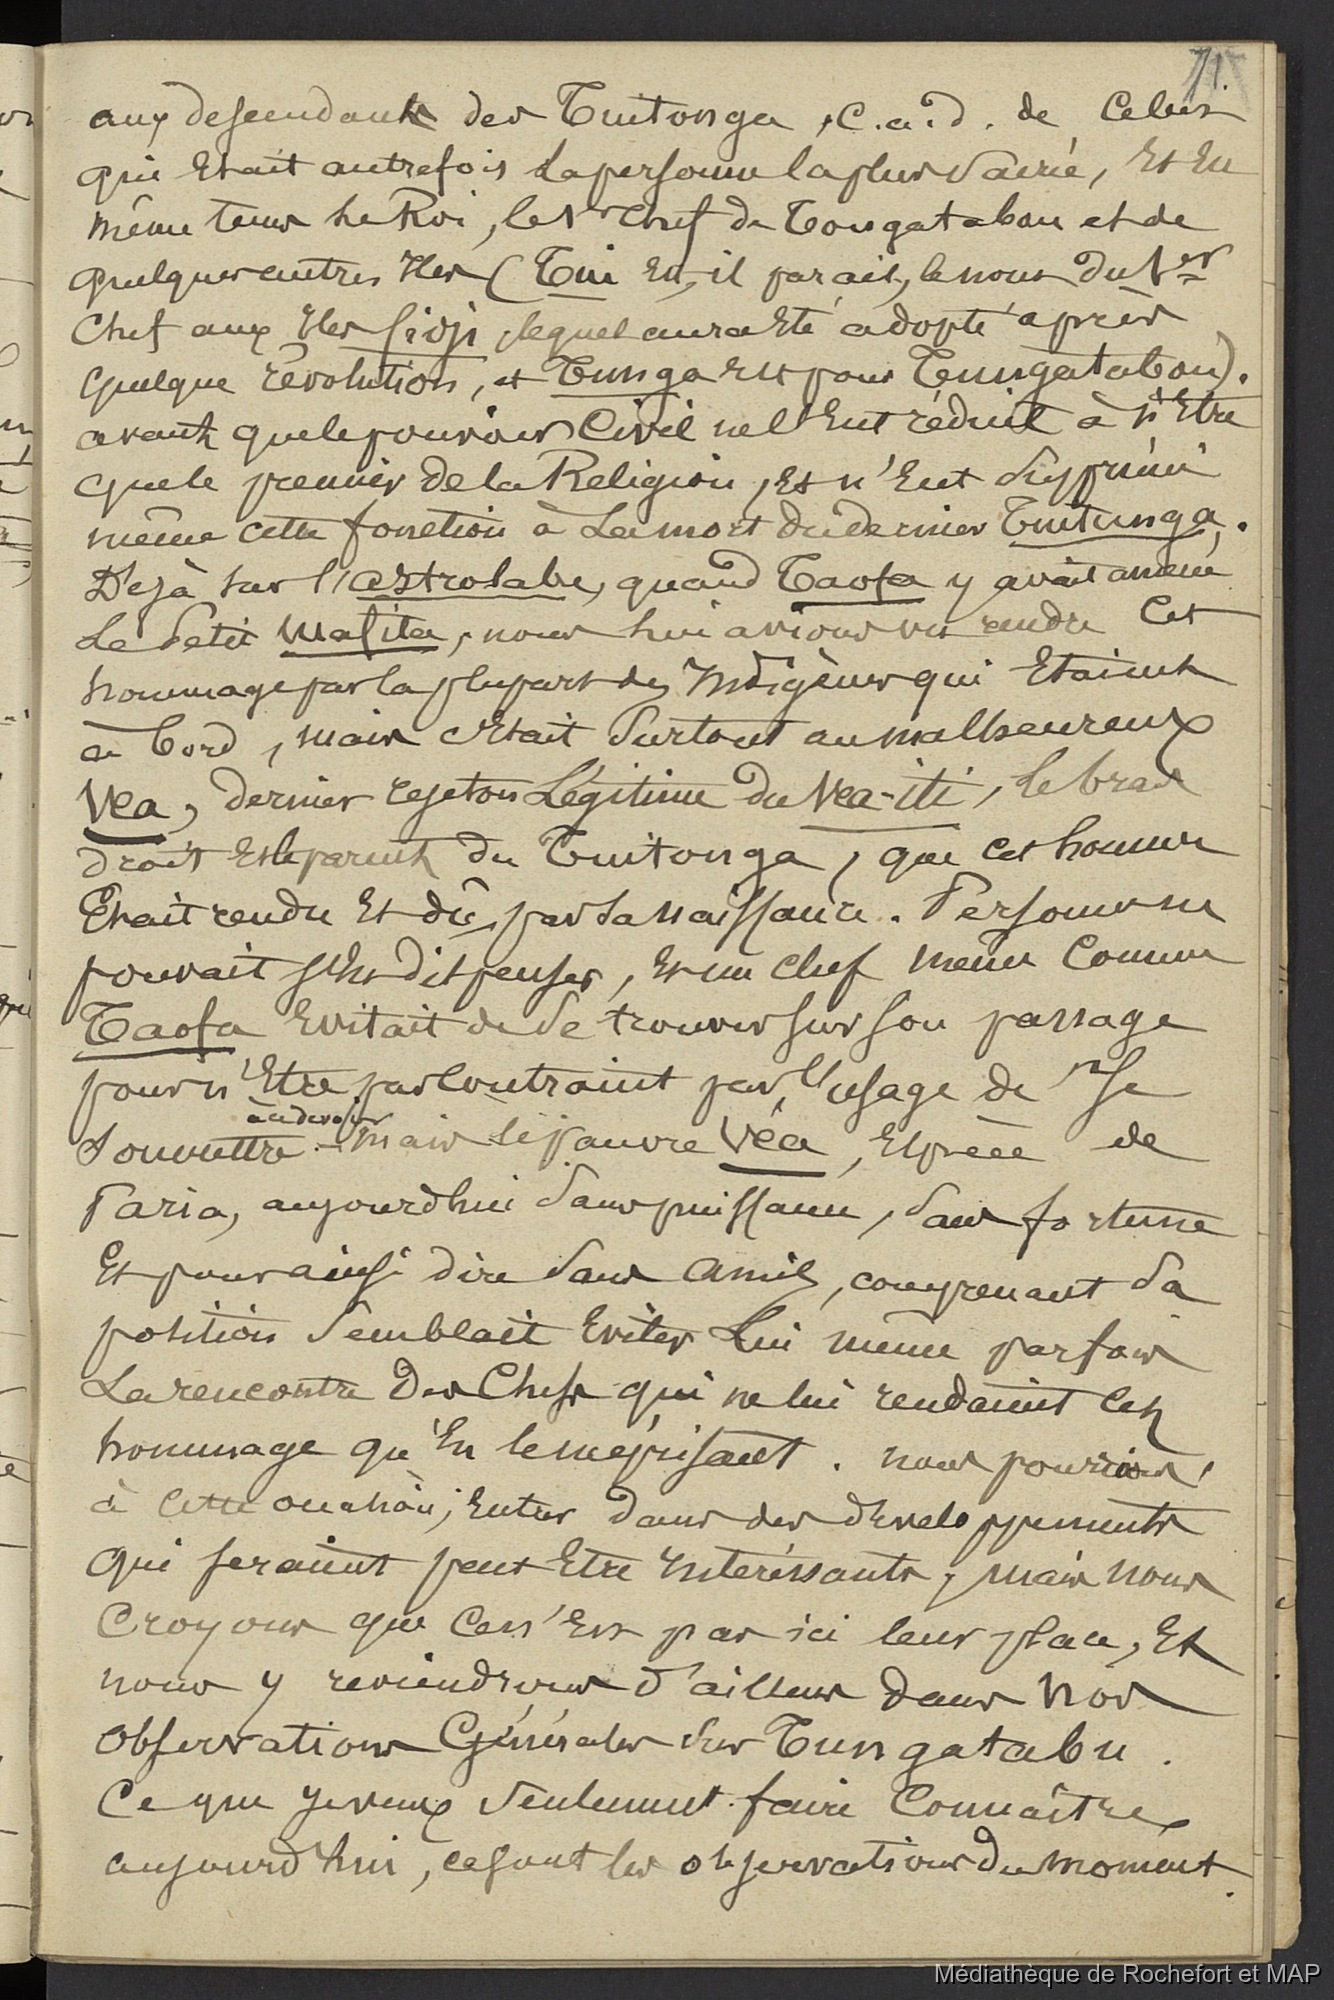 71.
aux descendants des Tuitonga, c.a.d. de Celui
qui Etait autrefois la personne la plus Sacrée, Et En
même tems le Roi, le 1er Chef de Tongatabou et de
quelques autres Iles (Tui Est, il parait, le nom du 1er
Chef aux Iles fidji, lequel aura Eté adopté après
quelque révolution, et Tunga Est pour Tungatabou).
avant que le pouvoir Civil ne l'Eut réduit à n'Etre
que le premier de la Religion, Et n'Eut Supprimé
même cette fonction à La mort du dernier Tuitunga.
Déjà sur l'astrolabe, quand Taofa y avait amené
Le Petit Mafita, nous lui avions vu rendre Cet
hommage par la plupart des Indigènes qui Etaient
à bord, mais c'Etait Surtout au malheureux
Véa, dernier rejeton Légitime du Véa-iti, le bras
droit Et le parent du Tuitonga, que cet honneur
Etait rendu Et dû, par Sa naissance. Personne ne
pouvait s'En dispenser, Et un chef même Comme
Taofa Evitait de Se trouver sur son passage
pour n'Etre pas Contraint par l'usage de se
à ce devoir
Soumettre. Mais le pauvre Véa, Espèce de
Paria, aujourd'hui Sans puissance, Sans fortune
Et pour ainsi dire Sans amis, comprenant Sa
position Semblait Eviter Lui même parfois
La rencontre des Chefs qui ne lui rendaient Cet
hommage qu'En le méprisant. nous pourrions,
à Cette occasion, Entrer dans des développements
qui seraient peut Etre Intéressants, mais nous
Croyons que Ce n'Est pas ici leur place, Et
nous y reviendrons d'ailleurs dans Nos
Observations Générales Sur Tungatabu.
Ce que je veux Seulement faire Connaître
aujourd'hui, ce sont les observations du moment.
Médiathèque de Rochefort et MAP